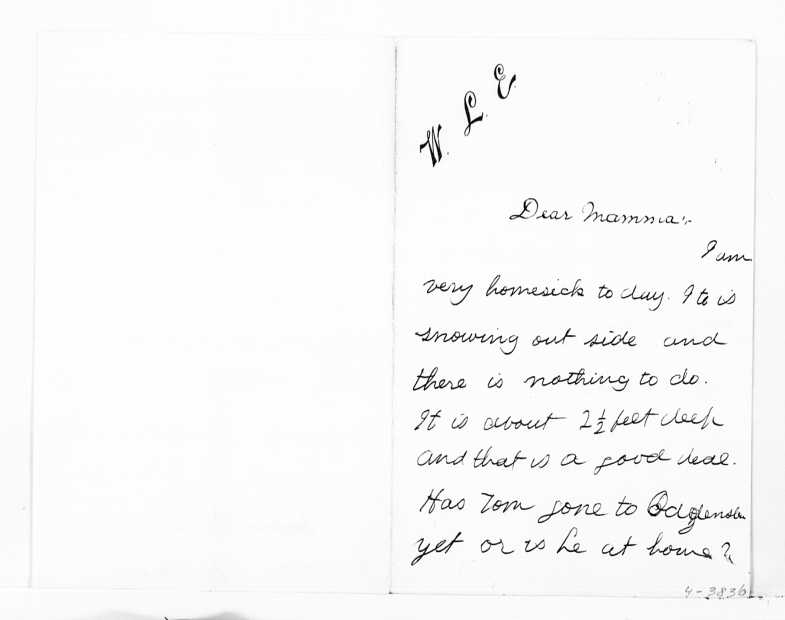 W. L. E.
Dear Mamma:-
I am
very homesick to day. Ite is
snowing out side and
there is nothing to do.
It is about 2½ feet deep
and that is a good deal.
Has Tom gone to
yet or is he at home?
4-3836